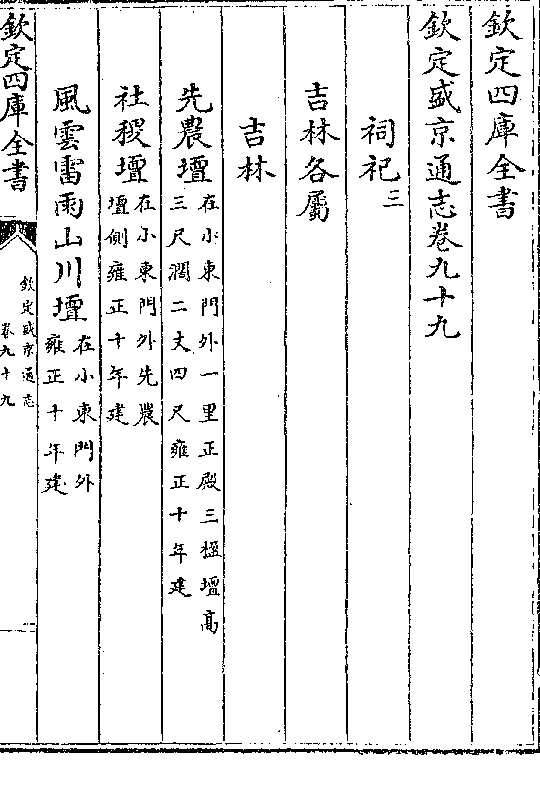 欽定四庫全書
欽定盛京通志卷九十九
祠祀三
吉林各屬
吉林
先農壇在小東門外一里正殿三楹壇高
三尺濶二丈四尺雍正十年建
社稷壇在小東門外先農
壇側雍正十年建
風雲雷雨山川壇在小東門外
雍正十年建
欽定四庫全書
欽定盛京通志
卷九十九